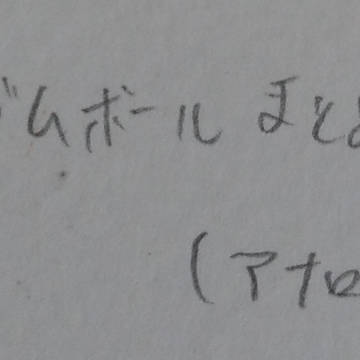 ムボール まと
(アナロ